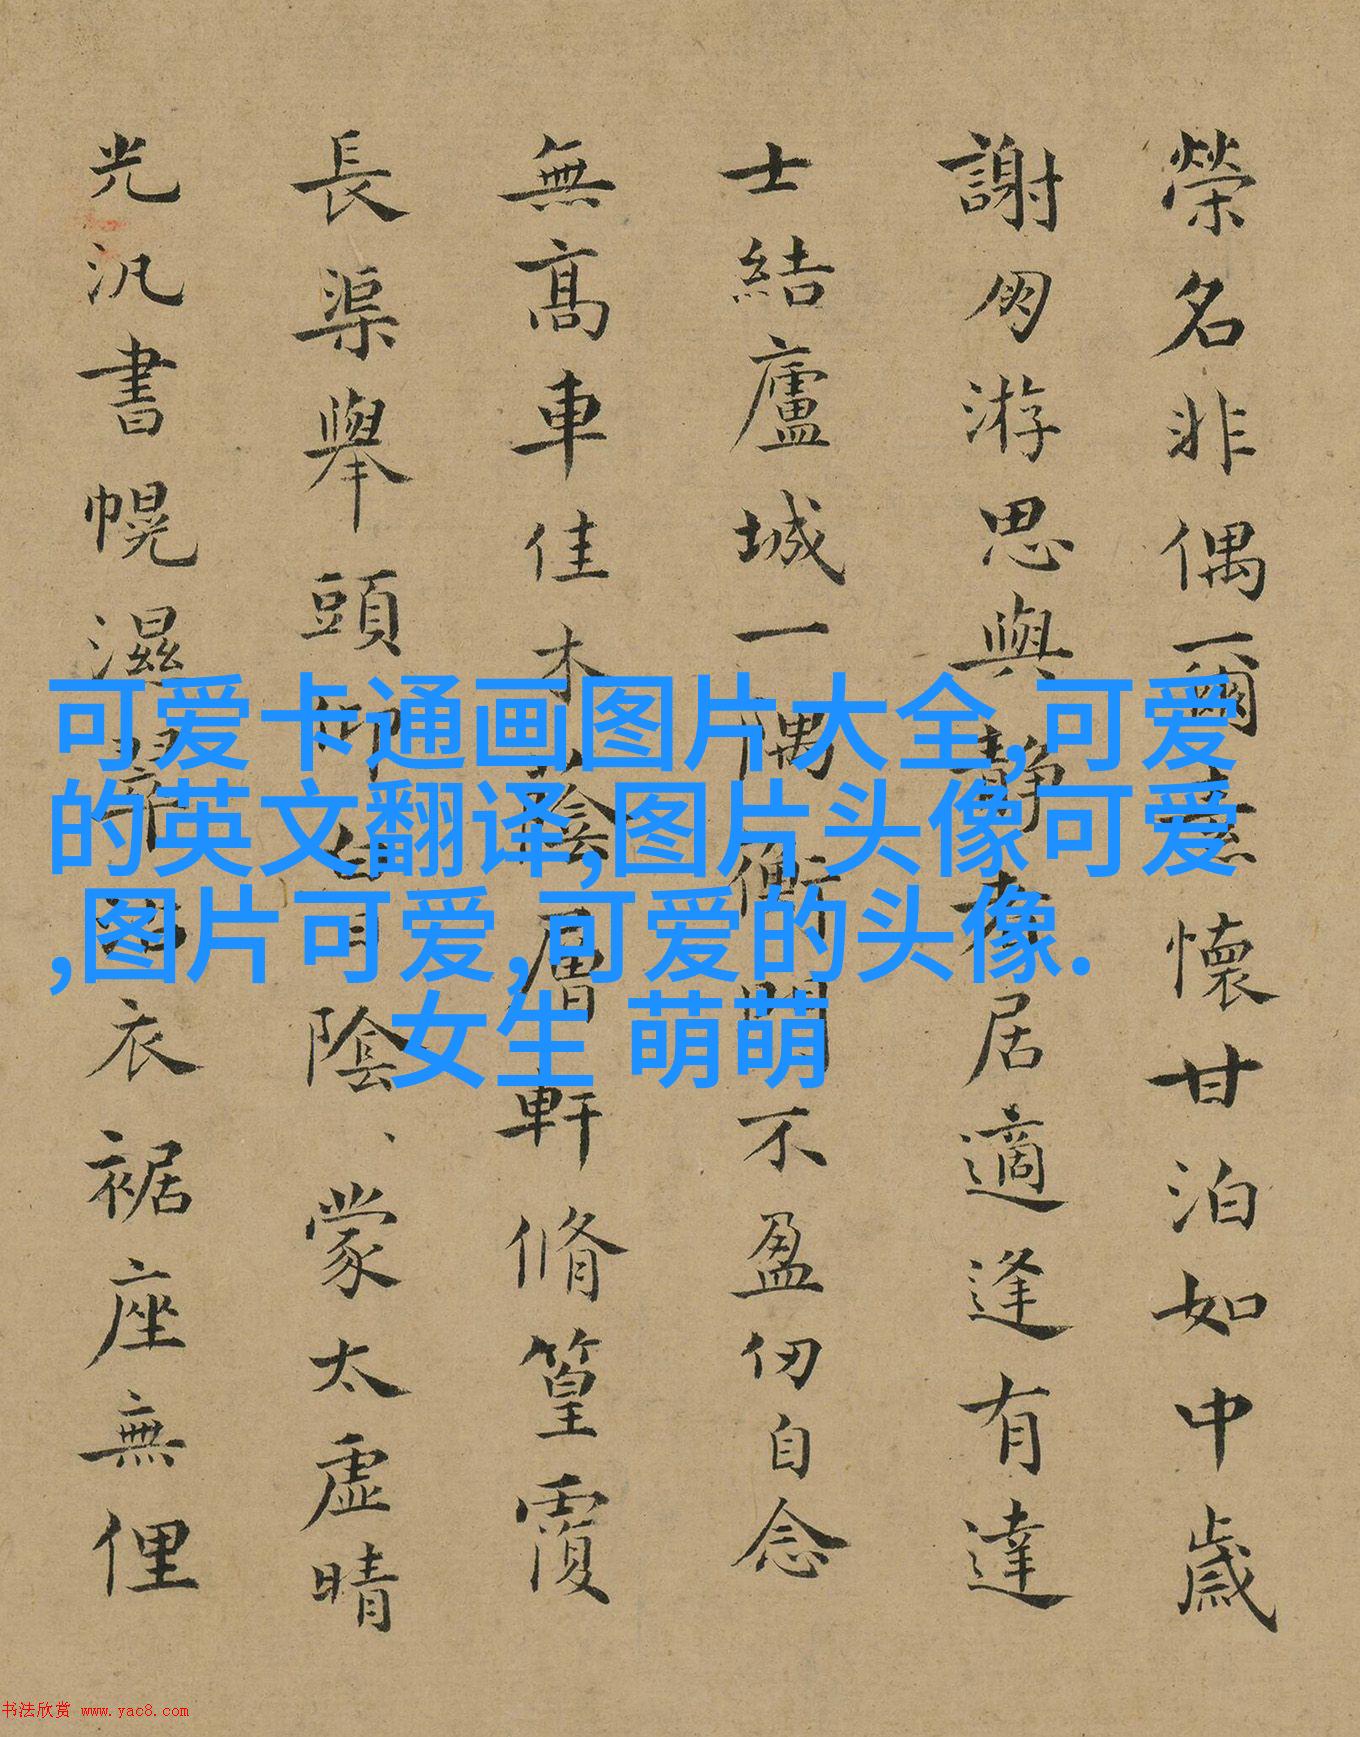 榮名非偶爾意懷甘泊如中歲
謝朋游思與靜者居適逢有達
士結廬城一隅衡門不盈仞自念
無高車佳木蔭層軒脩篁覆
長渠舉頭仰白日陰蒙太虛晴
光汎書幌濕翠衣裾座無俚
可爱卡通画图片大全,可爱
的英文翻译,图片头像可爱
,图片可爱,可爱的头像.
女生 萌萌
书法欣赏 www.yac8.com